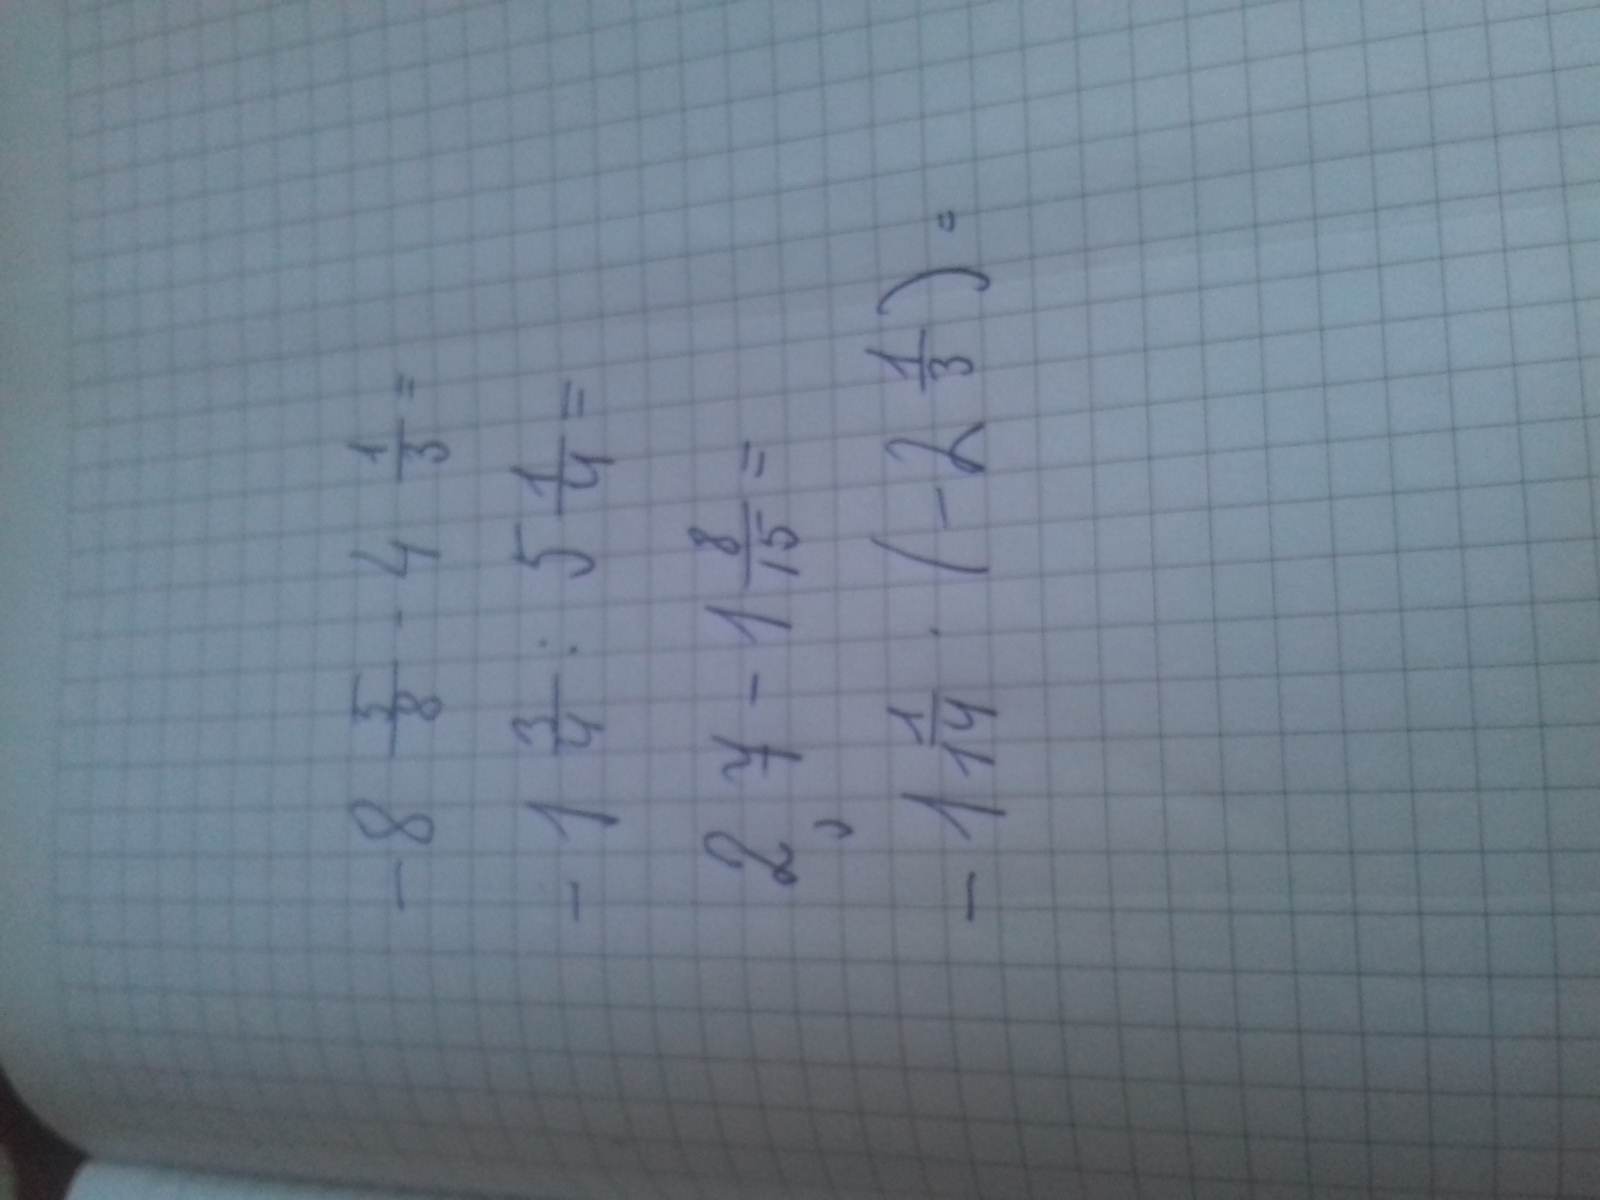 -8 5/8 - 4 1/3 =
-1 3/4 : 5 1/4 =
2,7 - 1 8/15 =
-1 1/14 · (-2 1/3) =